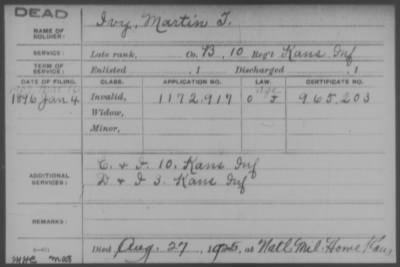 DEAD
NAME OF SOLDIER: Ivy, Martin T.
SERVICE: Late rank, Co. B, 10 Reg't Kans Inf
TERM OF SERVICE: Enlisted , 1 Discharged , 1
DATE OF FILING. CLASS. APPLICATION NO. LAW. CERTIFICATE NO.
1896 Jan 4 Invalid, 1172.919 965.203
Widow,
Minor,
ADDITIONAL SERVICES: C. & F. 10. Kans Inf
D & I 3. Kans Inf
REMARKS:
Died Aug. 27, 1925, at Natl. Mil. Home Kans